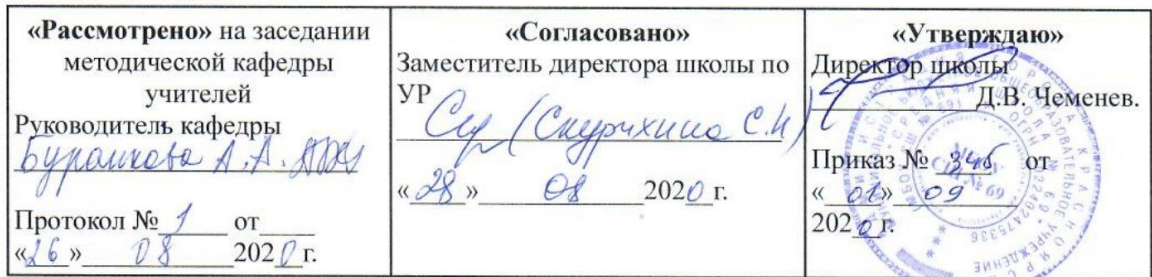 «Рассмотрено» на заседании
методической кафедры
учителей
Руководитель кафедры
А.А.
Протокол № 1 от
«26» 08 2020 г.
«Согласовано»
Заместитель директора школы по
УР
«28» 08 2020 г.
«Утверждаю»
Директор школы
Д.В. Чеменев.
Приказ № от
«01» 09
2020 г.